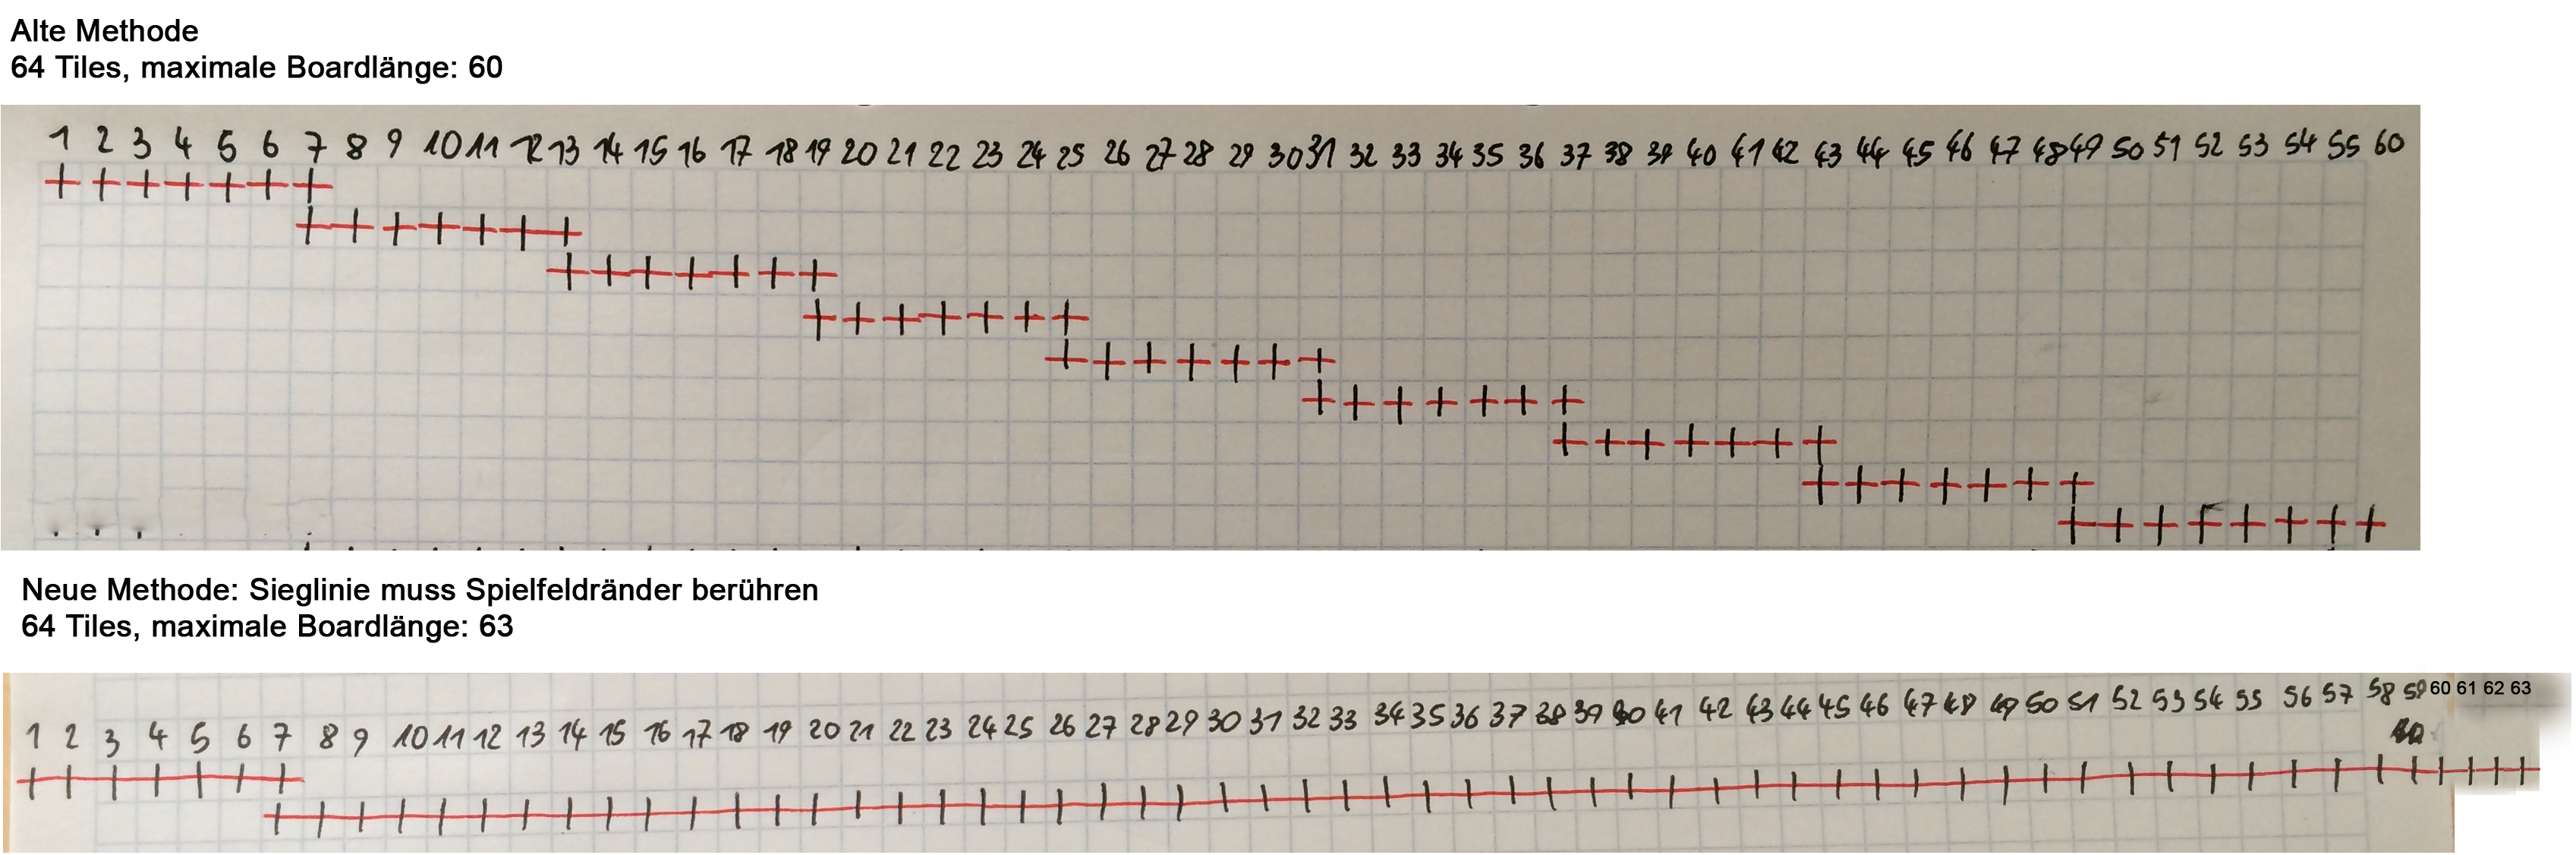 Alte Methode
64 Tiles, maximale Boardlänge: 60
1 2 3 4 5 6 7 8 9 10 11 12 13 14 15 16 17 18 19 20 21 22 23 24 25 26 27 28 29 30 31 32 33 34 35 36 37 38 39 40 41 42 43 44 45 46 47 48 49 50 51 52 53 54 55 60
Neue Methode: Sieglinie muss Spielfeldränder berühren
64 Tiles, maximale Boardlänge: 63
1 2 3 4 5 6 7 8 9 10 11 12 13 14 15 16 17 18 19 20 21 22 23 24 25 26 27 28 29 30 31 32 33 34 35 36 37 38 39 40 41 42 43 44 45 46 47 48 49 50 51 52 53 54 55 56 57 58 59 60 61 62 63